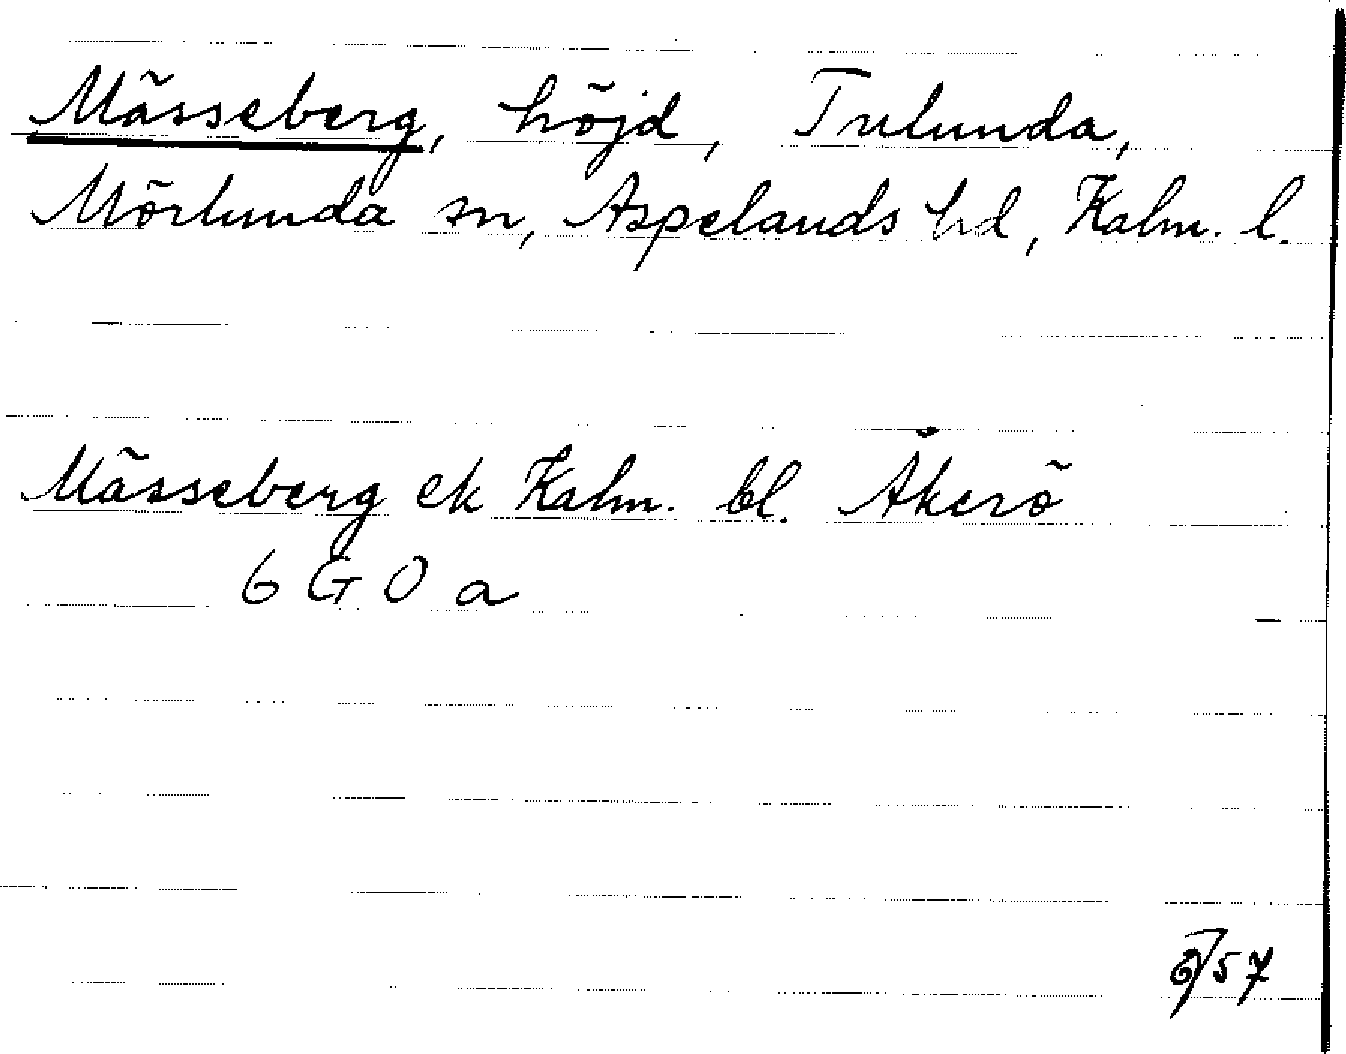 Mässeberg, höjd, Tulunda,
Mörlunda sn, Aspelands hd, Kalm. l.
Mässeberg ek Kalm. bl. Åkerö
6 G 0 a
57